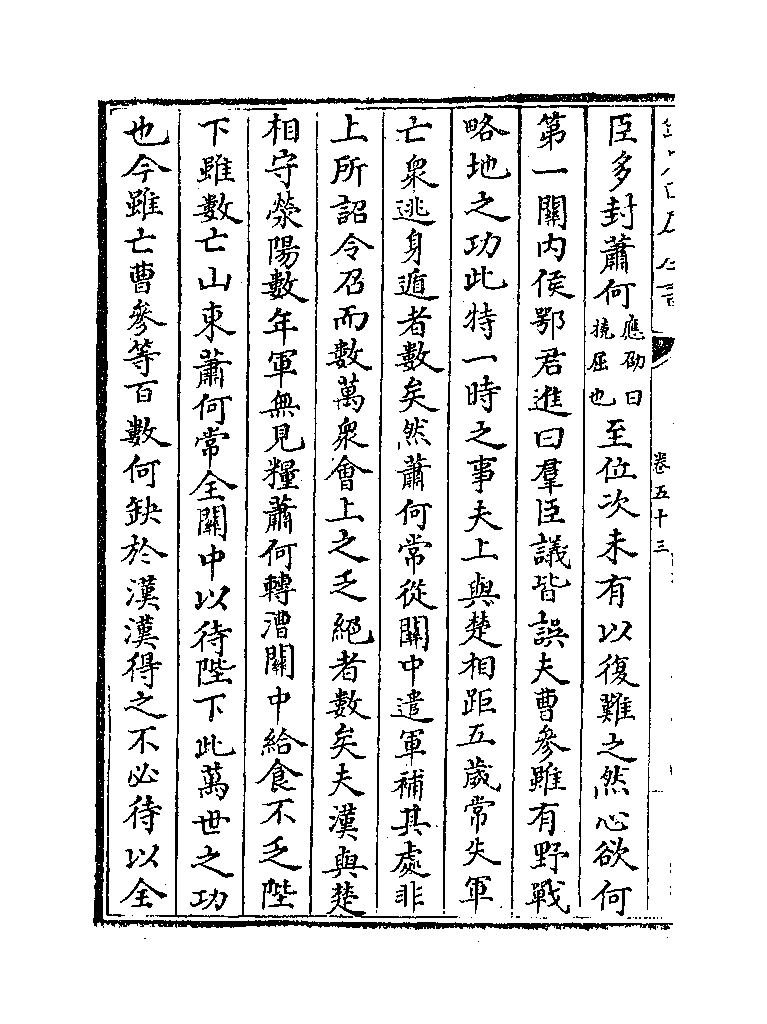 卷五十三
臣多封蕭何應劭曰撓屈也至位次未有以復難之然心欲何
第一關内侯鄂君進曰羣臣議皆誤夫曹參雖有野戰
略地之功此特一時之事夫上與楚相距五歲常失軍
亡衆逃身遁者數矣然蕭何常從關中遣軍補其處非
上所詔令召而數萬衆會上之乏絕者數矣夫漢與楚
相守滎陽數年軍無見糧蕭何轉漕關中給食不乏陛
下雖數亡山東蕭何常全關中以待陛下此萬世之功
也今雖亡曹參等百數何缺於漢漢得之不必待以全